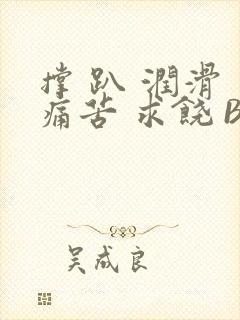 撑 趴 潤滑
痛苦 求饒 B
吴成良